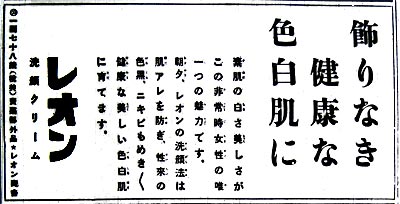 飾りなき
健康な
色白肌に
素肌の白さ美しさが
この非常時女性の唯
一つの魅力です。
朝夕、レオンの洗顔法は
肌アレを防ぎ、性來の
色黒、ニキビもめき〱
健康な美しい色白肌
に育てます。
レオン
洗顔クリーム